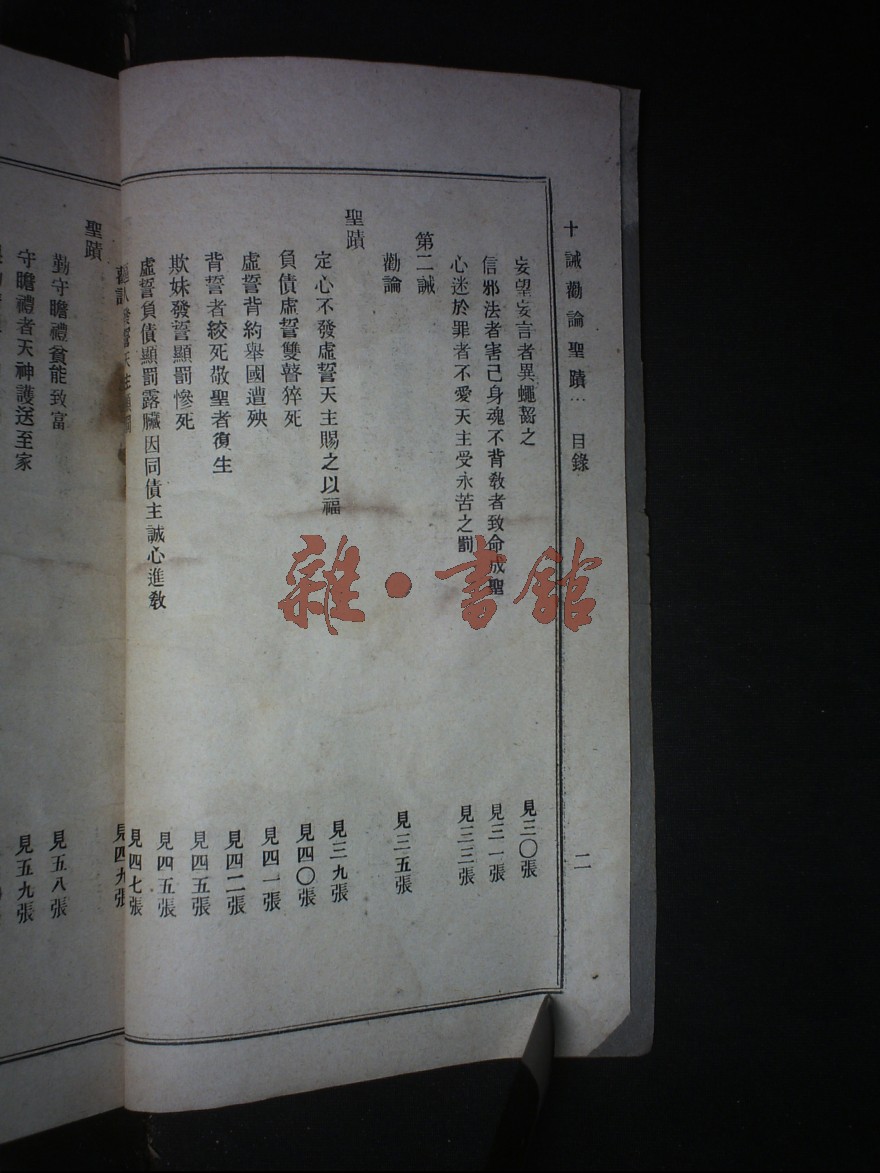 十誡勸論聖蹟 目錄 二
妄望妄言者異蠅齧之 見三〇張
信邪法者害己身魂不背教者致命成聖 見三一張
心迷於罪者不愛天主受永苦之罰 見三三張
第二誡
勸論 見三五張
聖蹟
定心不發虛誓天主賜之以福 見三九張
負債虛誓雙瞽猝死 見四〇張
虛誓背約舉國遭殃 見四一張
背誓者絞死敬聖者復生 見四二張
欺妹發誓顯罰慘死 見四五張
虛誓負債顯罰露贓因同債主誠心進教 見四五張
見四七張
見四九張
聖蹟
勤守瞻禮貧能致富 見五八張
守瞻禮者天神護送至家 見五九張
雜·書館